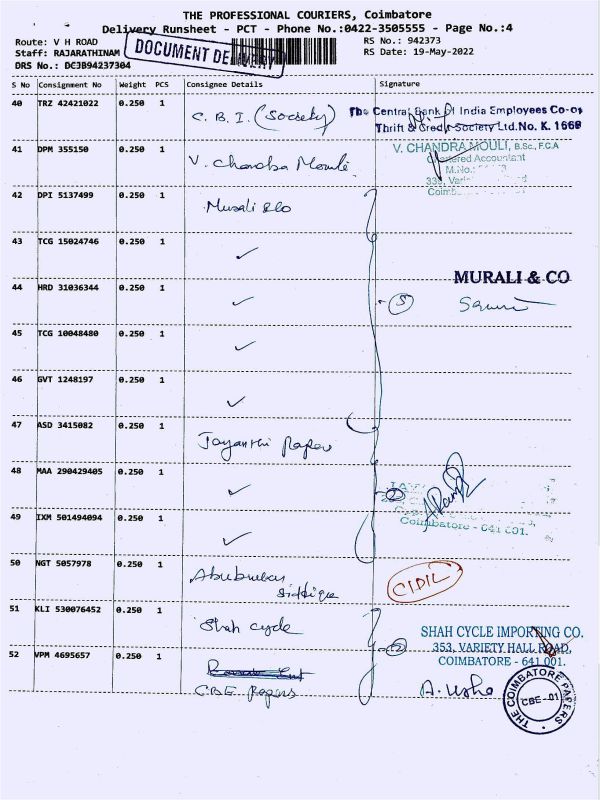 THE PROFESSIONAL COURIERS, Coimbatore
Delivery Runsheet - PCT - Phone No.:0422-3505555 - Page No.:4
Route: V H ROAD
RS No.: 942373
Staff: RAJARATHINAM
DOCUMENT DELIVERY
RS Date: 19-May-2022
DRS No.: DCJB94237304
S No Consignment No Weight PCS Consignee Details Signature
40 TRZ 42421022 0.250 1 C. B. I. (Society)
The Central Bank Of India Employees Co-op
Thrift & Credit Society Ltd. No. K. 1669
41 DPM 355150 0.250 1 V. Chandra Mouli
V. CHANDRA MOULI, B.Sc., F.C.A
Chartered Accountant
M.No.:
42 DPI 5137499 0.250 1 Murali &co
43 TCG 15024746 0.250 1 ✓
MURALI & CO
44 HRD 31036344 0.250 1 ✓ 5
45 TCG 10048480 0.250 1 ✓
46 GVT 1248197 0.250 1 ✓
47 ASD 3415082 0.250 1 Jayanthi Papers
48 MAA 290429405 0.250 1 ✓ 2
49 IXM 501494094 0.250 1 ✓
Coimbatore - 641 001.
50 NGT 5057978 0.250 1 Abubucker
Siddique
51 KLI 530076452 0.250 1 Shah cycle
SHAH CYCLE IMPORTING CO.
353, VARIETY HALL ROAD,
COIMBATORE - 641 001.
52 VPM 4695657 0.250 1
CBE Papers
A. Usha
THE COIMBATORE PAPERS
CBE-01